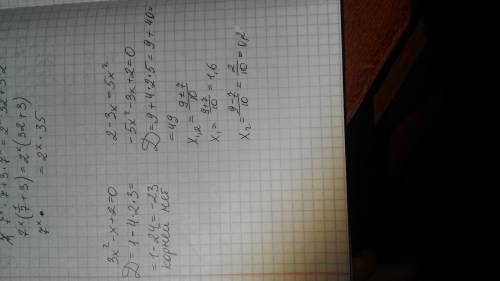 7ˣ(1/7 + 3) = 2ˣ(32 + 3)
7ˣ · = 2ˣ · 35
3x² - x + 2 = 0
D = 1 - 4·2·3 =
= 1 - 24 = -23
корней нет
2 - 3x = 5x²
-5x² - 3x + 2 = 0
D = 9 + 4·2·5 = 9 + 40 =
= 49
x₁,₂ = (9 ± 7)/10
x₁ = (9 + 7)/10 = 1,6
x₂ = (9 - 7)/10 = 2/10 = 0,2